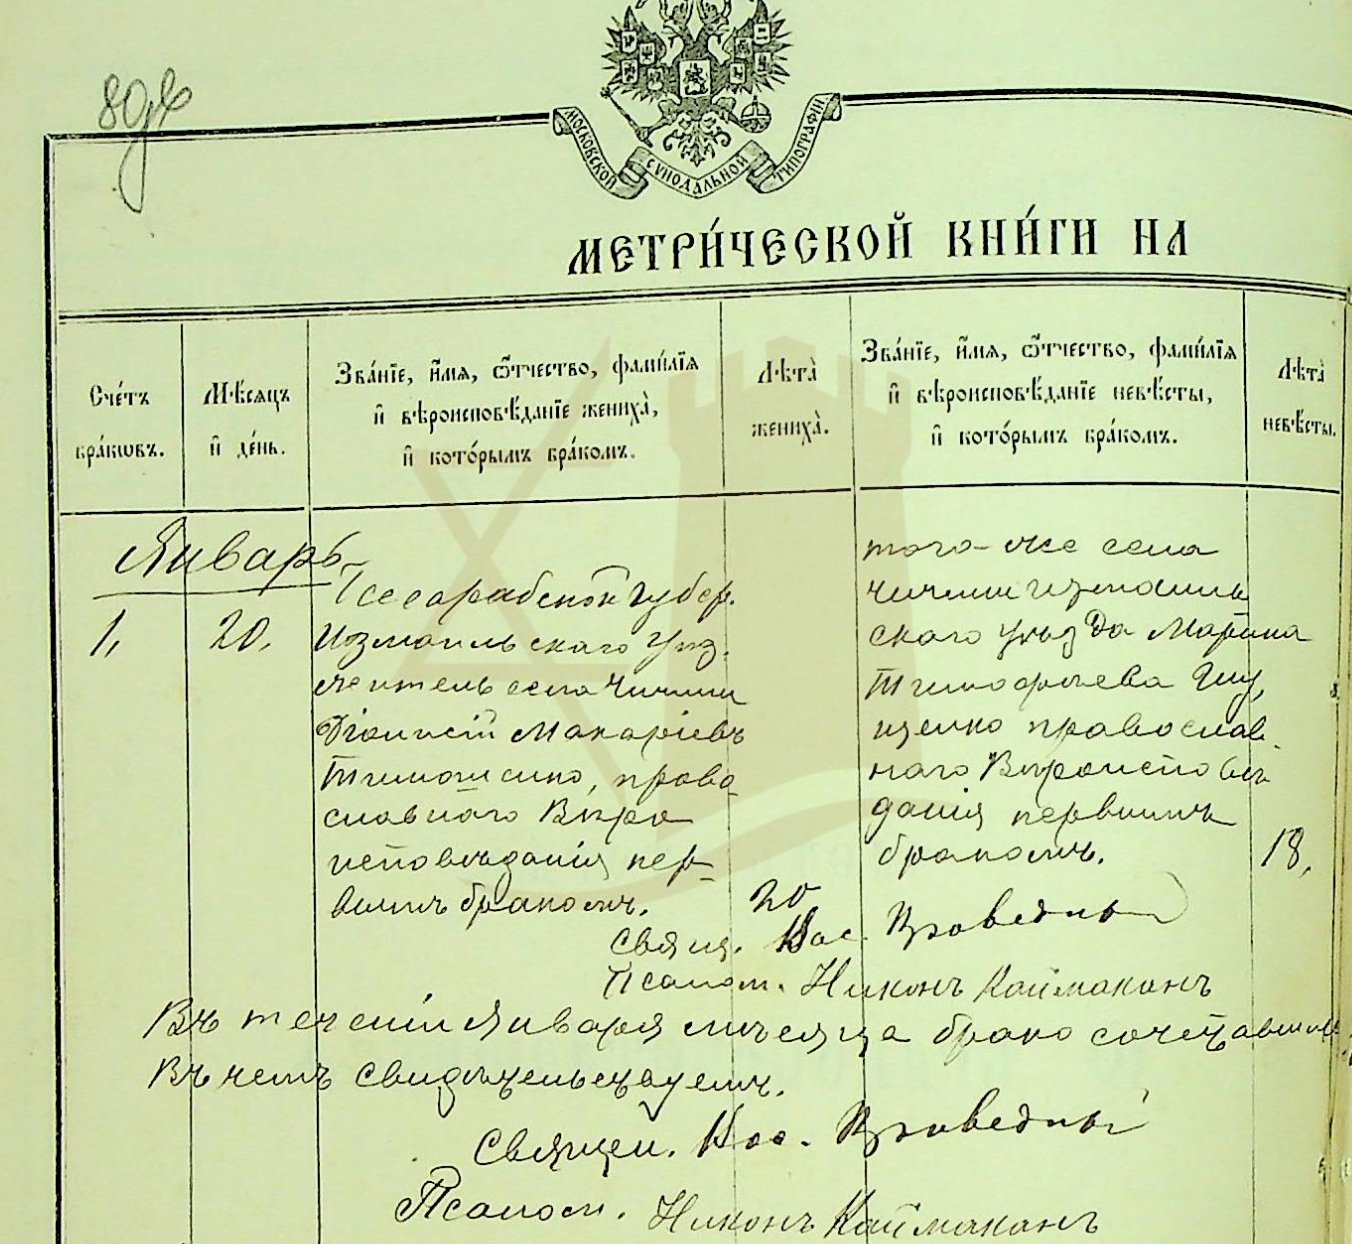 МОСКОВСКОЙ СѴНОДАЛЬНОЙ ТИПОГРАФІИ
МЕТРИ́ЧЕСКОЙ КНИ́ГИ НА
Сче́тъ бра́кѡвъ.
Мѣ́сяцъ и҆ де́нь.
Зва́нїе, и҆́мѧ, ѻ҆́тчество, фами́лїѧ и҆ вѣроисповѣ́данїе жениха̀, и҆ кото́рымъ бра́комъ.
Лѣта̀ жениха̀.
Зва́нїе, и҆́мѧ, ѻ҆́тчество, фами́лїѧ и҆ вѣроисповѣ́данїе невѣ́сты, и҆ кото́рымъ бра́комъ.
Лѣта̀ невѣ́сты.
Январь
1,
20,
Бессарабской губер.
Измаильскаго уѣз.
житель села Чичми
Діонисій Макаріевъ
Тимошенко, право
славнаго Вѣро
исповѣданія пер-
вымъ бракомъ.
20
того-же села
Чичми Измаиль
скаго уѣзда Марина
Тимофѣева
православ
наго Вѣроисповѣ
данія первымъ
бракомъ.
18,
Свящ. Вас.
Псалом. Никонъ Каймаканъ
Въ теченіи Января мѣсяца брако сочетавших
Въ чемъ свидѣтельствуемъ.
Священ.
Псалом. Никонъ Каймаканъ